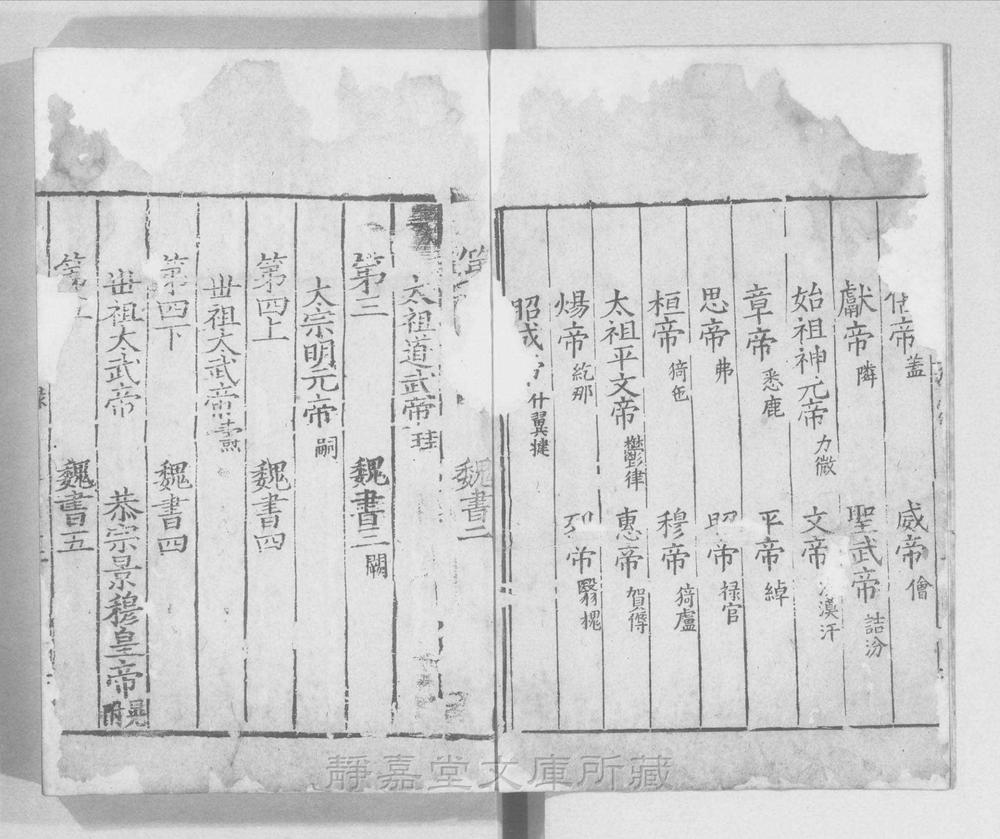 帝 蓋　威帝 儈
獻帝 隣　聖武帝 詰汾
始祖神元帝 力微　文帝 漠汗
章帝 悉鹿　平帝 綽
思帝 弗　昭帝 禄官
桓帝 猗㐌　穆帝 猗盧
太祖平文帝 鬱律　惠帝 賀傉
煬帝 紇那　烈帝 翳槐
昭成帝 什翼犍
魏書二
太祖道武帝 珪
第三　魏書三 闕
太宗明元帝 嗣
第四上　魏書四
丗祖太武帝 燾
第四下　魏書四
丗祖太武帝　恭宗景穆皇帝 晃附
第五　魏書五
靜嘉堂文庫所藏